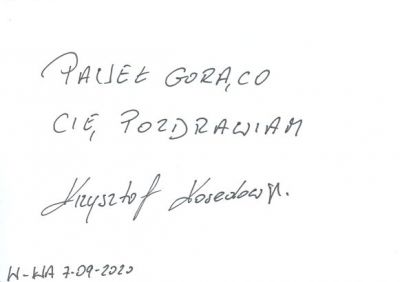 PAWEŁ GORĄCO
CIĘ POZDRAWIAM
Krzysztof Kosedowski.
W-WA 7-09-2020